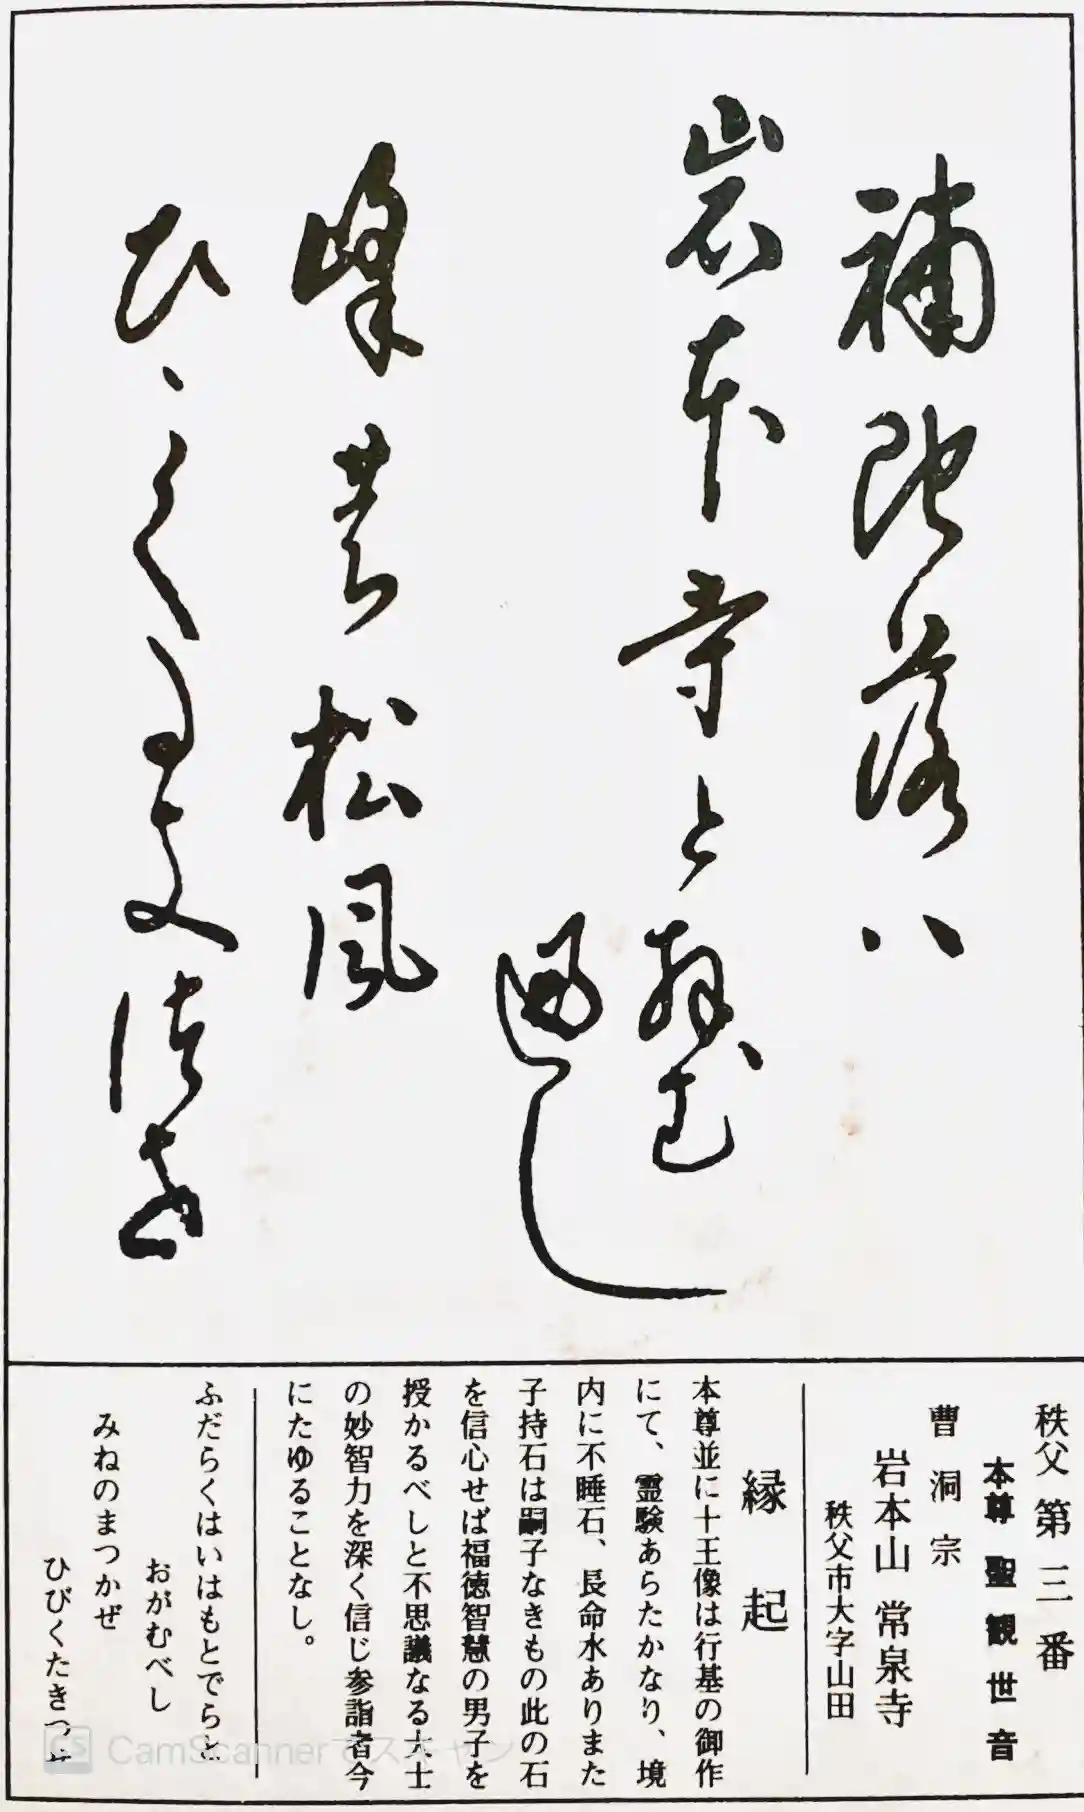 補陀落ハ
岩本寺と拝む
遍し
峰 松風
ひゝく
秩父第三番
本尊 聖観世音
曹洞宗
岩本山 常泉寺
秩父市大字山田
縁起
本尊並に十王像は行基の御作
にて、霊験あらたかなり、境
内に不睡石、長命水ありまた
子持石は嗣子なきもの此の石
を信心せば福徳智慧の男子を
授かるべしと不思議なる大士
の妙智力を深く信じ参詣者今
にたゆることなし。
ふだらくはいはもとでらと
おがむべし
みねのまつかぜ
ひびくたきつせ
CS CamScannerでスキャン